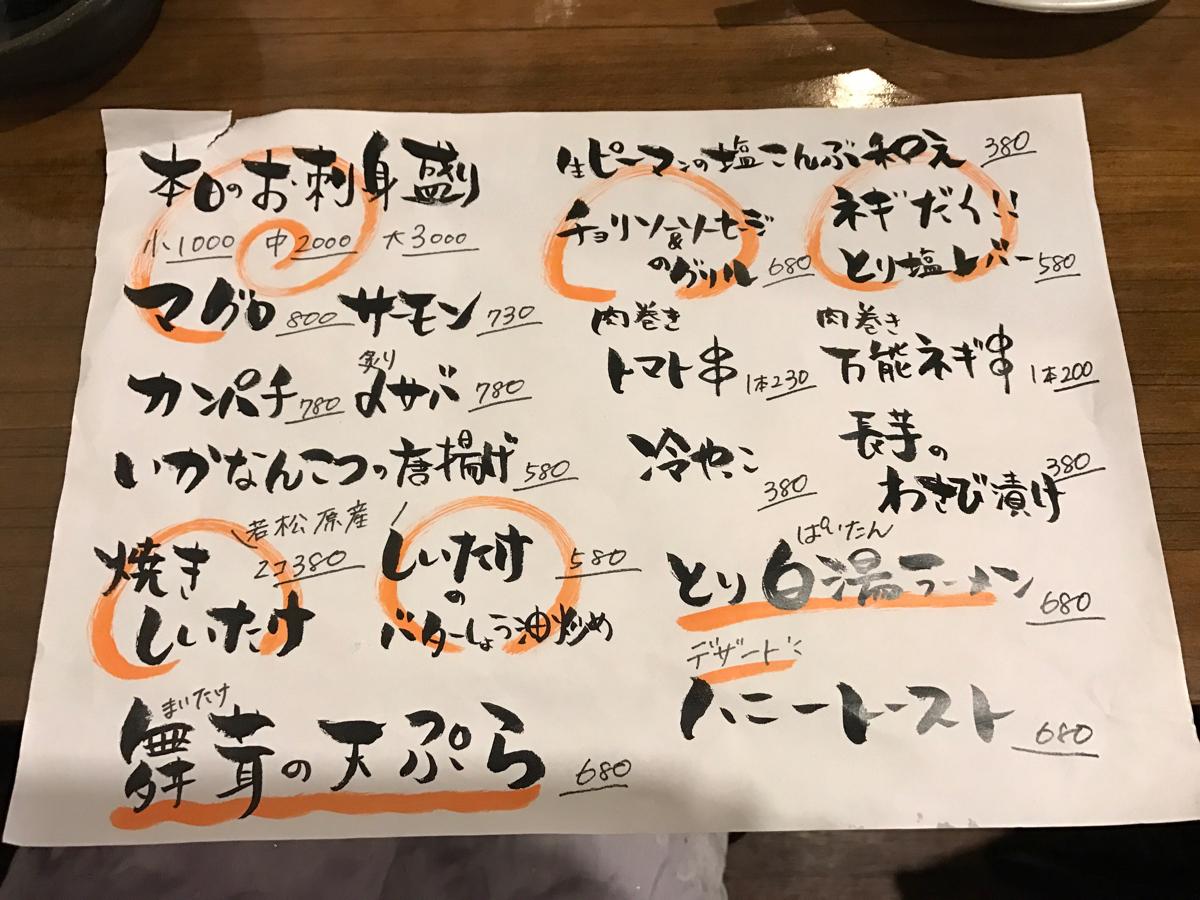 本日のお刺身盛り
小1000 中2000 大3000
マグロ 800 サーモン 730
炙り
カンパチ 780 〆サバ 780
いかなんこつの唐揚げ 580
若松原産
焼き 2コ380
しいたけ
しいたけ 580
の
バターしょう油炒め
まいたけ
舞茸の天ぷら 680
生ピーマンの塩こんぶ和え 380
チョリソー&ソーセージ
のグリル 680
ネギだく!!
とり塩レバー 580
肉巻き
トマト串 1本230
肉巻き
万能ネギ串 1本200
冷やっこ 380
長芋の
わさび漬け 380
ぱいたん
とり白湯ラーメン 680
デザート
ハニートースト 680